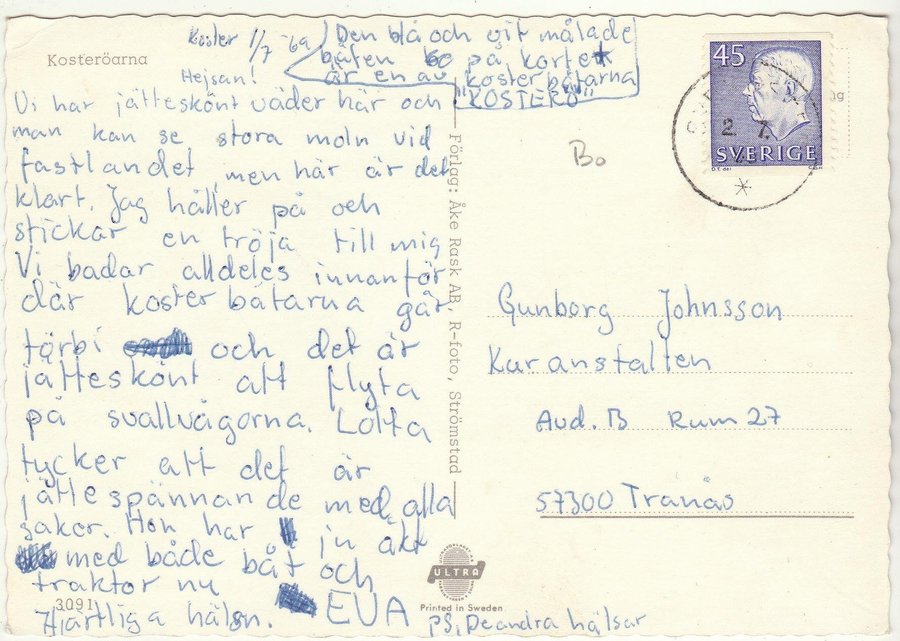 Kosteröarna
Koster 1/7 -69
Den blå och vit målade
båten på kortet
är en av kosterbåtarna
"KOSTERÖ"
Hejsan!
Vi har jätteskönt väder här och
man kan se stora moln vid
fastlandet, men här är det
klart. Jag håller på och
stickar en tröja till mig
Vi badar alldeles innanför
där kosterbåtarna går
förbi och det är
jätteskönt att flyta
på svallvågorna. Lotta
tycker att det är
jättespännande med alla
saker. Hon har ju åkt
med både båt och
traktor nu
Hjärtliga hälsn. EVA
PS. De andra hälsar
3091
Förlag: Åke Rask AB, R-foto, Strömstad
ULTRA
Printed in Sweden
Bo
45
SVERIGE
2. 7.
Gunborg Johnsson
Kuranstalten
Avd. B Rum 27
57300 Tranås